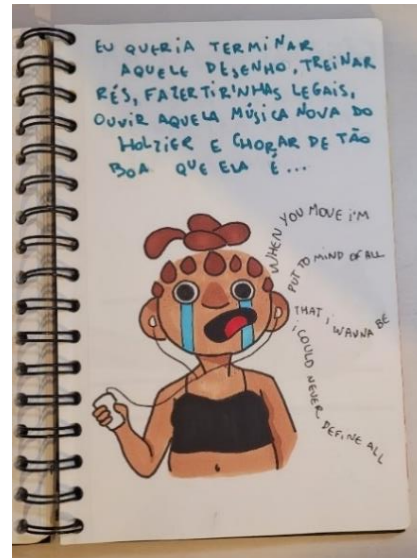 EU QUERIA TERMINAR
AQUELE DESENHO, TREINAR
RÉS, FAZER TIRINHAS LEGAIS,
OUVIR AQUELA MÚSICA NOVA DO
HOLZIER E CHORAR DE TÃO
BOA QUE ELA É...
WHEN YOU MOVE I'M
PUT TO MIND OF ALL
THAT I WANNA BE
I COULD NEVER DEFINE ALL